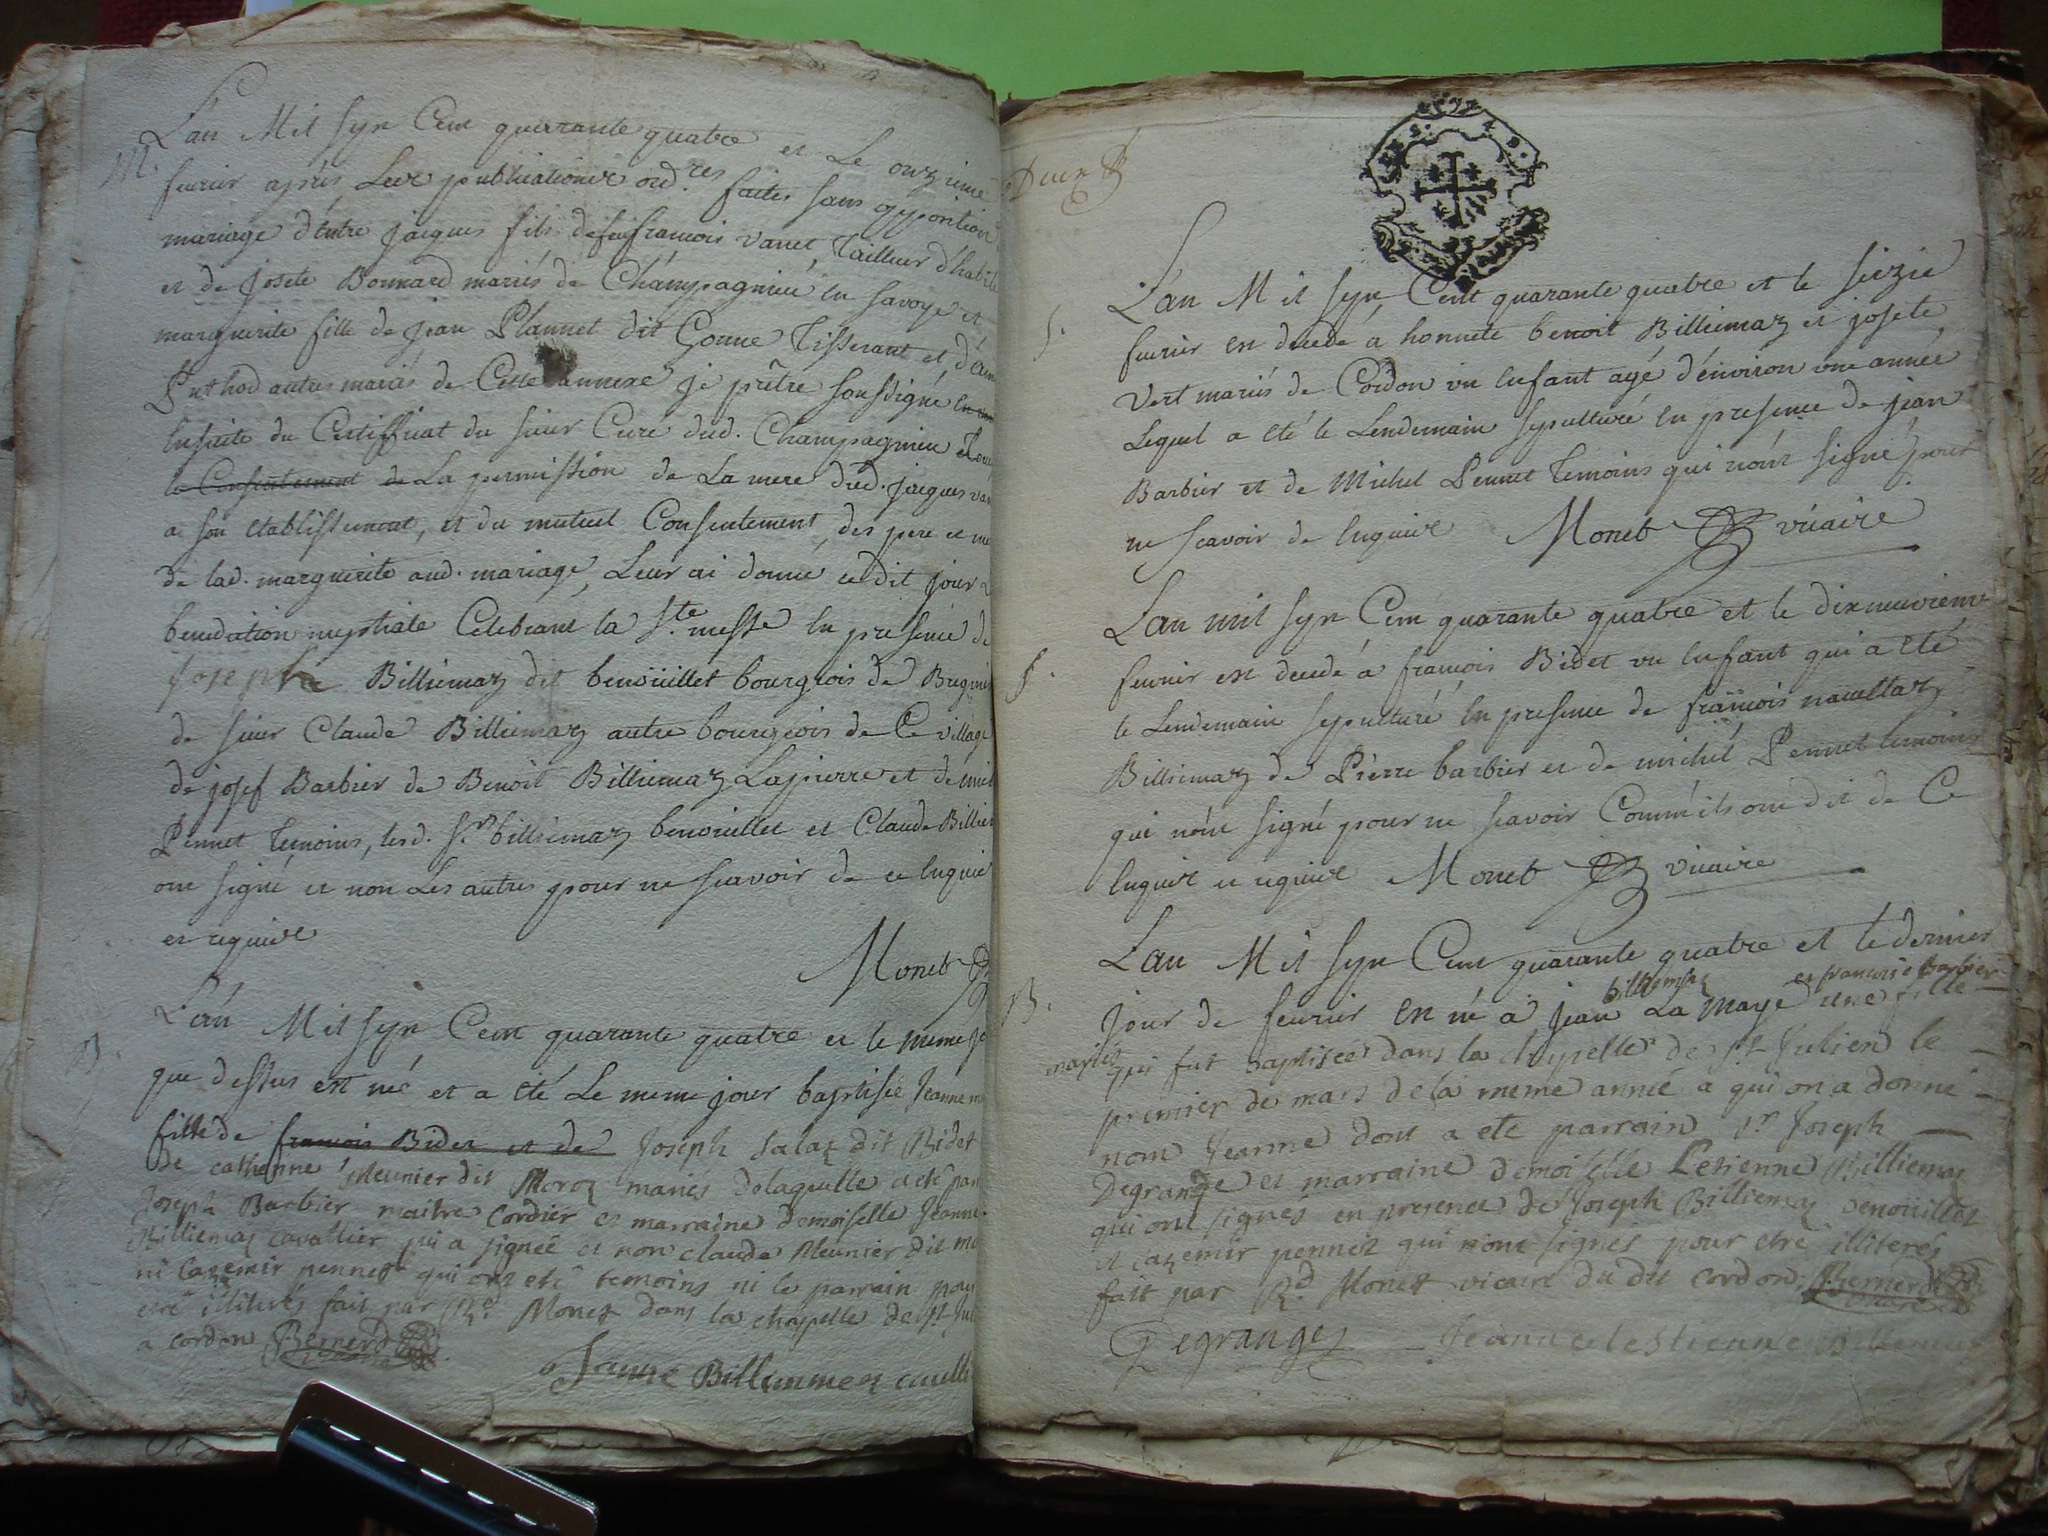 M.
L'an Mil sept Cent quarante quatre et Le onzieme
fevrier après Les publications ord.res faites sans opposition
mariage d'entre jacques fils de feu francois vanet, Tailleur d'habits
et de josete Bonnard mariés de Champagnieu en Savoye et
marguerite fille de jean Plannet dit Gonne Tisserant et
Puthod autres mariés de Cette annexe je prêtre soussigné
ensuite du Certifficat du sieur Cure dud. Champagnieu
le Consentement de La permission de La mere dud. jacques
a son etablissement, et du mutuel Consentement, des pere et
de lad. marguerite aud. mariage, Leur ai donné ce dit jour
benediction nuptiale Celebrant la S.te messe en presence de
joseph Billiemaz dit benoüillet bourgeois de
de sieur Claude Billiemaz autre bourgeois de Ce village
de josef Barbier de Benoit Billiemaz Lapierre et de
Pennet Temoins, lesd. S.rs billiemaz benouillet et Claude
ont signé et non Les autres pour ne scavoir de ce enquis
et requis
Monet
B.
L'an Mil sept Cent quarante quatre et le meme
que dessus est née et a été Le meme jour baptisée jeanne
fille de francois Bidet et de joseph Salaz dit Bidet
de catherine Meunier dit Moroz mariés delaquelle a eté
joseph Barbier maitre Cordier et marraine demoiselle jeanne
Billiemaz cavallier qui a signée et non claude Meunier dit
ni Cazemir pennet qui ont eté temoins ni le parrain pour
etre illiterés fait par R.d Monet dans la chapelle de St
a cordon Bernerd
Janne Billiemmez
Deux
S.
L'an Mil sept Cent quarante quatre et le seizie
fevrier est decedé à honnete benoit Billiemaz et josete
Vert mariés de Cordon un Enfant agé d'environ une année
Lequel a été le Lendemain sepulturé en presence de jean
Barbier et de Michel Pennet Temoins qui n'ont signé pour
ne scavoir de Enquis Monet vicaire
S.
L'an mil sept Cent quarante quatre et le dixneuvieme
fevrier est decedé à francois Bidet un Enfant qui a été
le Lendemain sepulturé en presence de francois
Billiemaz de Pierre barbier et de michel Pennet temoins
qui n'ont signé pour ne scavoir Comm'ils ont dit de Ce
Enquis et requis Monet vicaire
B.
L'an Mil sept Cent quarante quatre et le dernier
billiemaz et francoise Barbier
jour de fevrier est né à jean La Maye une fille
mariez qui fut baptisée dans la chapelle de St Julien le
premier de mars de la meme année a qui on a donné
nom jeanne dont a eté parrain Sr Joseph
Degrange et marraine demoiselle Letienne Billiemaz
qui ont signés en presence de Joseph Billiemaz benouillet
et cazemir pennet qui n'ont signés pour etre illiterés
fait par R.d Monet vicaire du dit cordon Bernerd
Degrange Jeanne Billiemaz